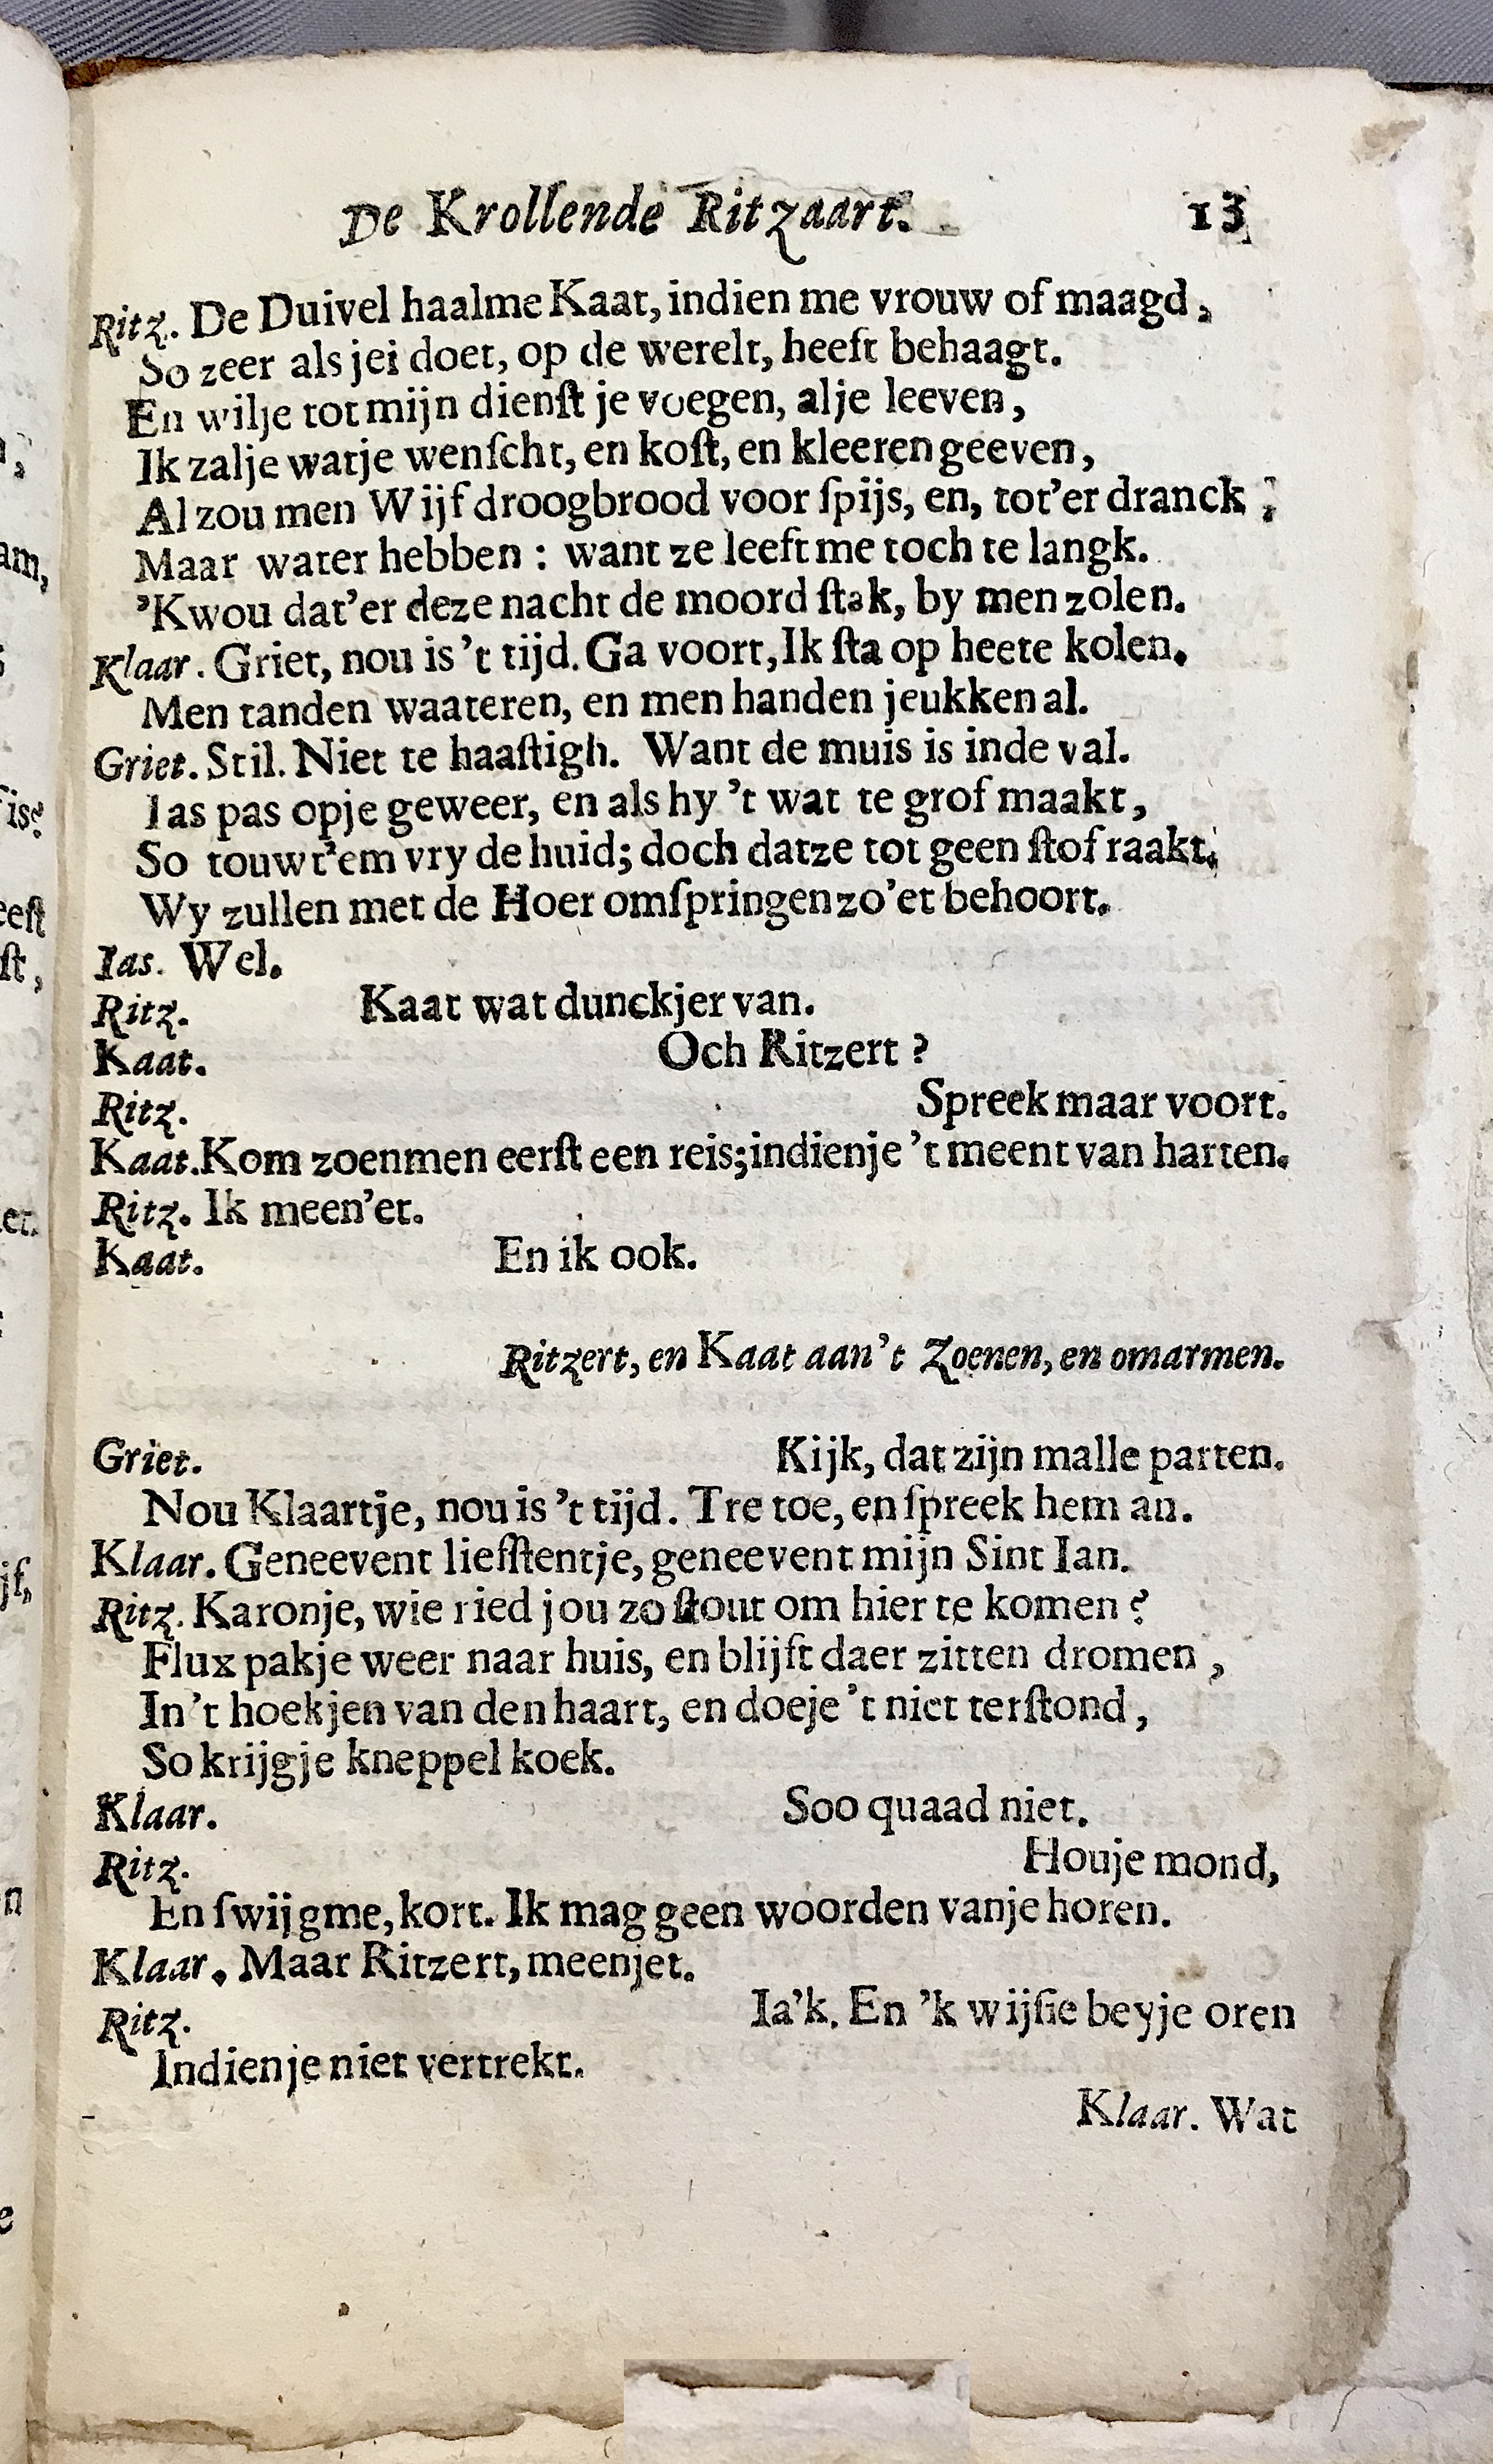 De Krollende Ritzaart. 13
Ritz. De Duivel haalme Kaat, indien me vrouw of maagd,
So zeer als jei doet, op de werelt, heeft behaagt.
En wilje tot mijn dienſt je voegen, alje leeven,
Ik zalje watje wenſcht, en koſt, en kleeren geeven,
Al zou men Wijf droogbrood voor ſpijs, en, tot'er dranck;
Maar water hebben: want ze leeft me toch te langk.
'Kwou dat'er deze nacht de moord ſtak, by men zolen.
Klaar. Griet, nou is 't tijd. Ga voort, Ik ſta op heete kolen.
Men tanden waateren, en men handen jeukken al.
Griet. Stil. Niet te haaſtigh. Want de muis is inde val.
Ias pas opje geweer, en als hy 't wat te grof maakt,
So touwt'em vry de huid; doch datze tot geen ſtof raakt.
Wy zullen met de Hoer omſpringen zo'et behoort.
Ias. Wel.
Ritz. Kaat wat dunckjer van.
Kaat. Och Ritzert?
Ritz. Spreek maar voort.
Kaat. Kom zoenmen eerſt een reis; indienje 't meent van harten.
Ritz. Ik meen'et.
Kaat. En ik ook.
Ritzert, en Kaat aan't Zoenen, en omarmen.
Griet. Kijk, dat zijn malle parten.
Nou Klaartje, nou is 't tijd. Tre toe, en ſpreek hem an.
Klaar. Geneevent liefſtentje, geneevent mijn Sint Ian.
Ritz. Karonje, wie ried jou zo ſtout om hier te komen?
Flux pakje weer naar huis, en blijft daer zitten dromen,
In't hoekjen van den haart, en doeje 't niet terſtond,
So krijgje kneppel koek.
Klaar. Soo quaad niet.
Ritz. Houje mond,
En ſwijgme, kort. Ik mag geen woorden vanje horen.
Klaar. Maar Ritzert, meenjet.
Ritz. Ia'k. En 'k wijſie beyje oren
Indienje niet vertrekt.
Klaar. Wat